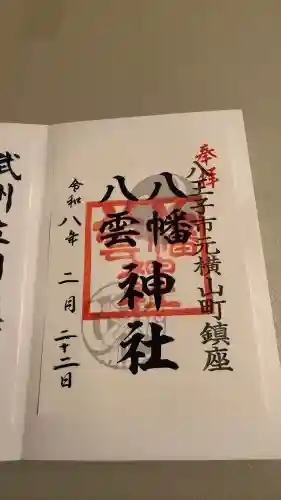 奉拝
八王子市元横山町鎮座
八幡
八雲
神社
令和八年二月二十二日
武州